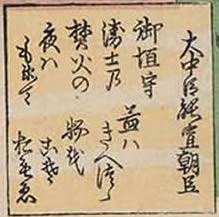 大中臣能宣朝臣
御垣守
衛士乃
焚火の
夜ハ
もゑて
昼ハ
きへつゝ
物越
こそ